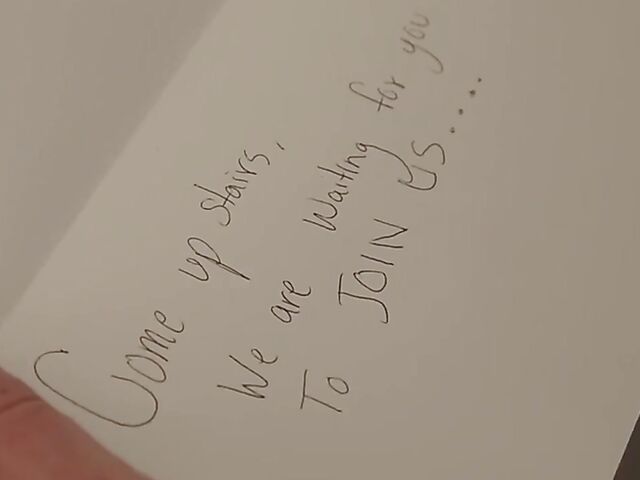 Come up stairs,
We are Waiting for you
To JOIN US.....